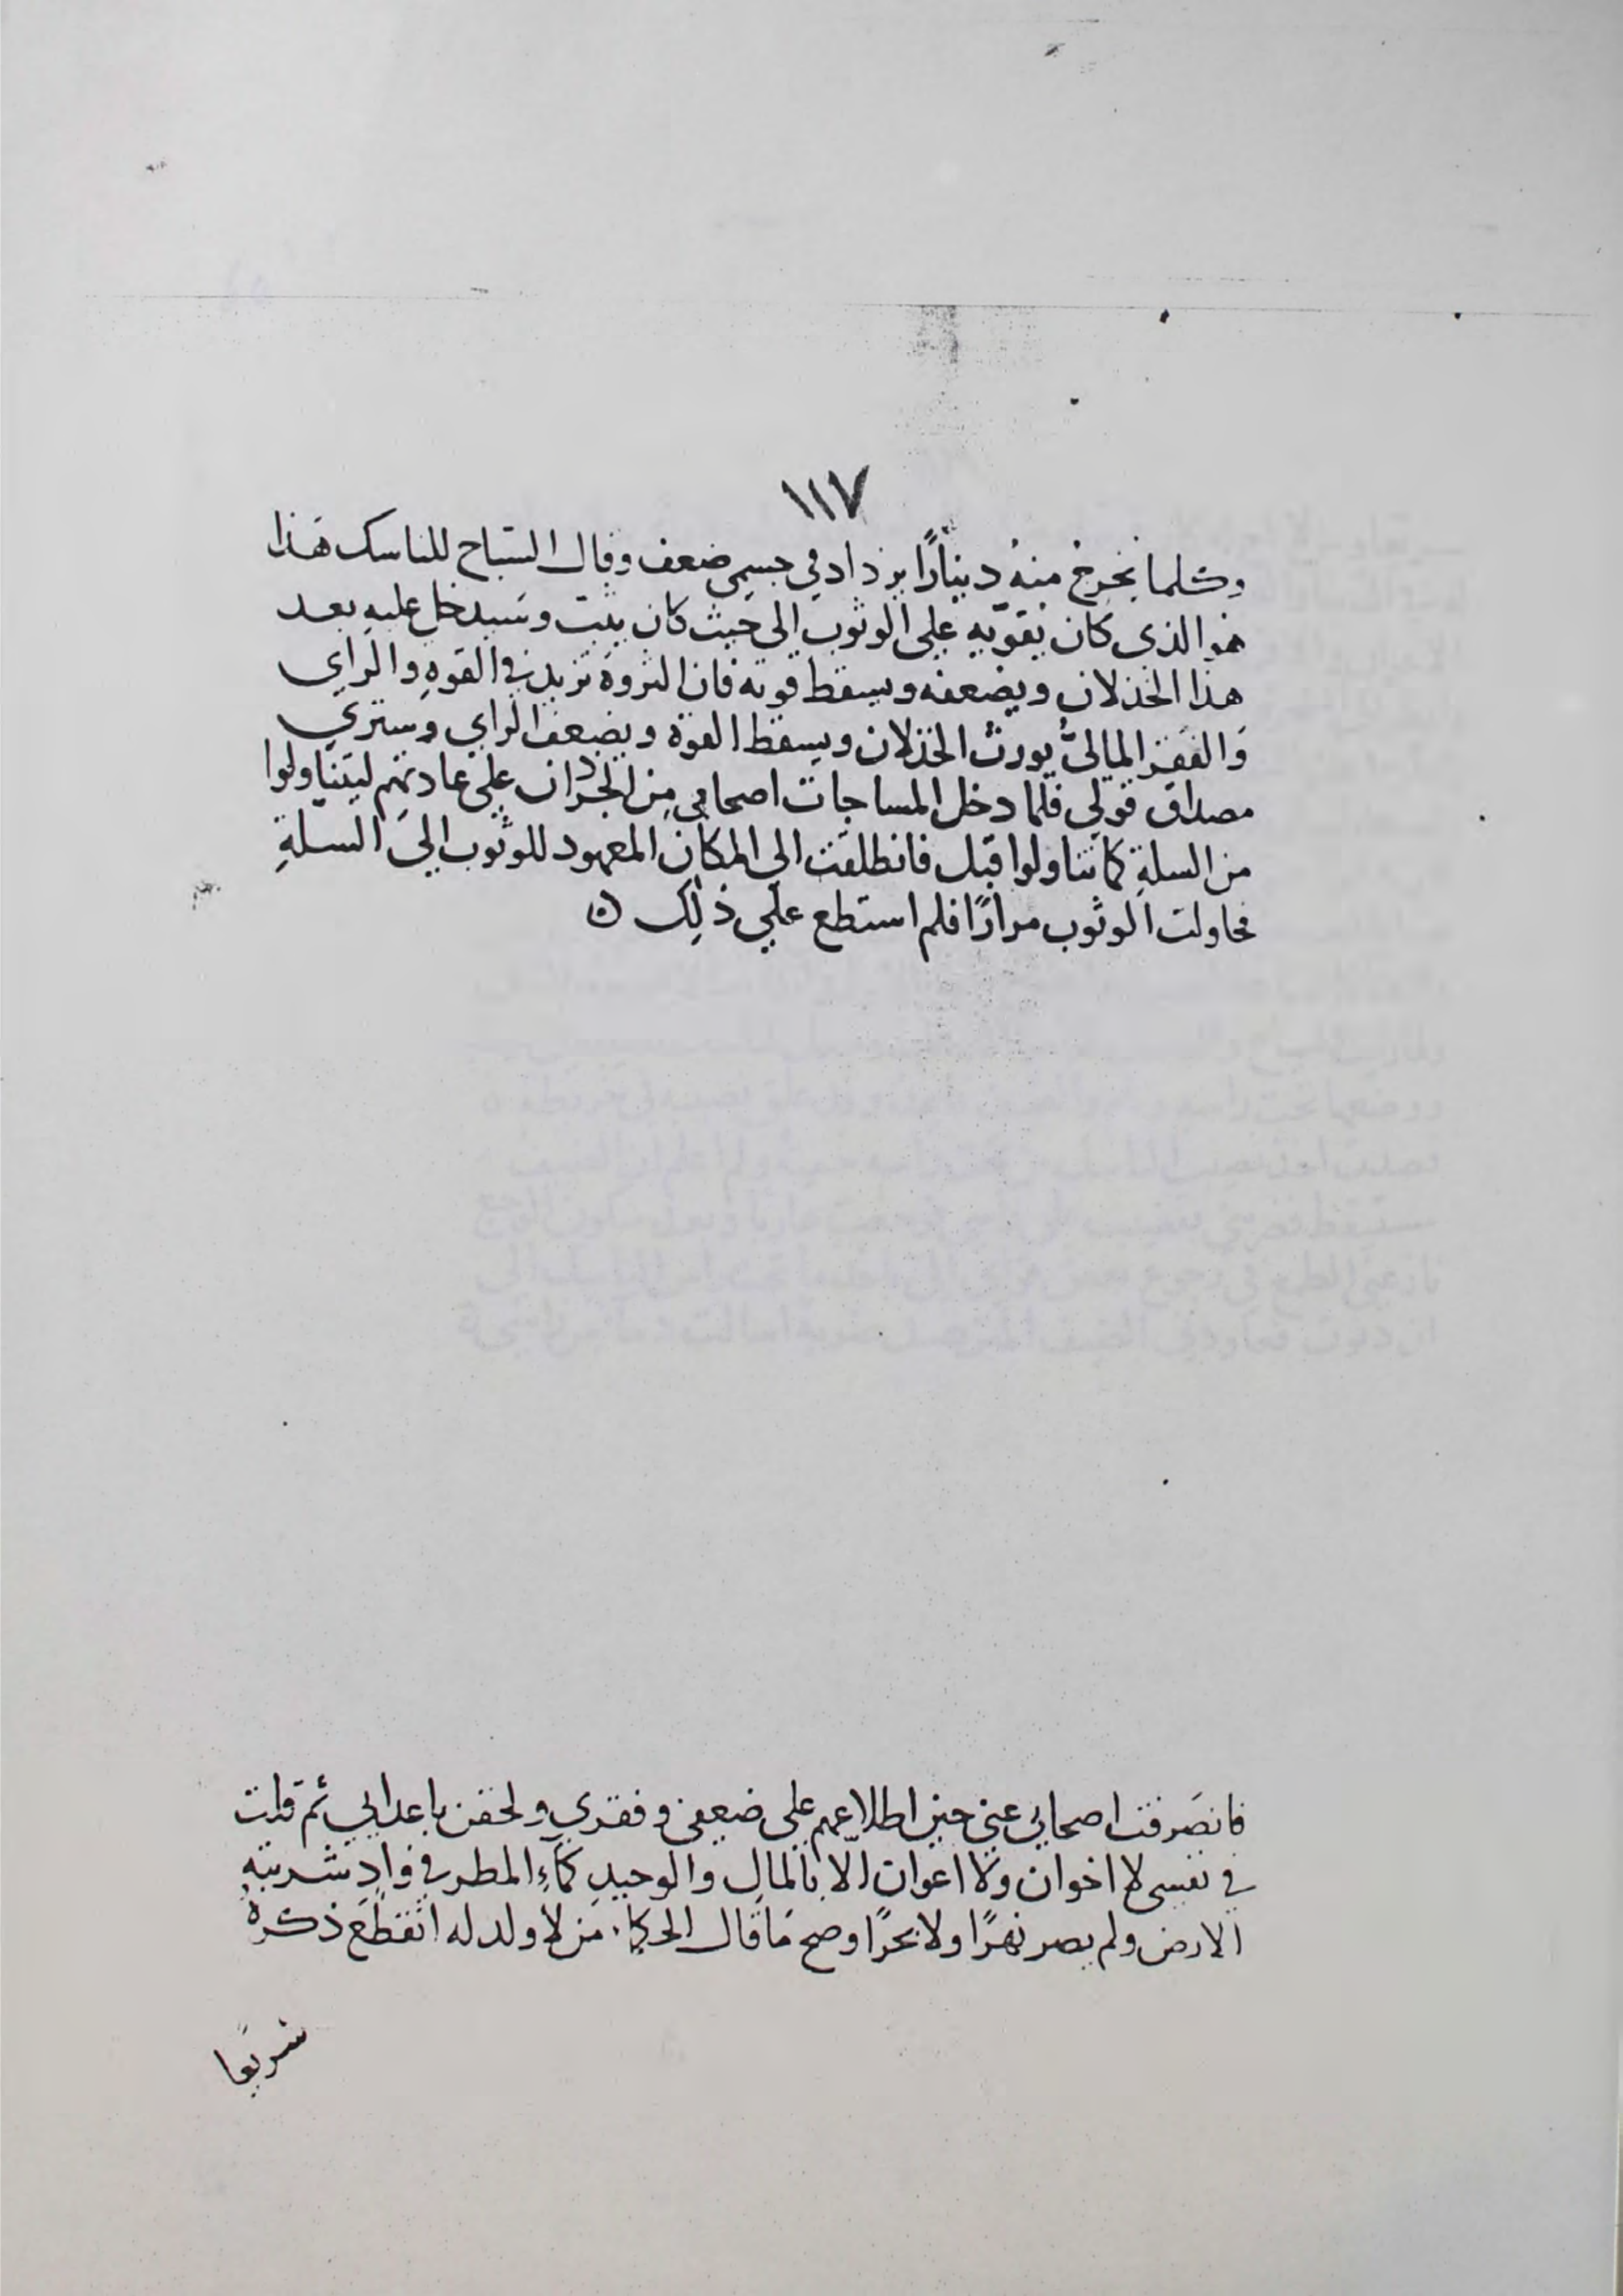 ١١٧
وكلما يخرج منهُ دينارًا يزداد في جسمي ضعف وقال السّياح للناسك هَذا
هو الذي كان يقوّيه علي الوثوب الي حَيث كان يثب وسَيدخل عليهِ بعد
هذا الخذلان ويضعفه ويسقط قوته فان الثروة تزيد في القوةِ والراي
وَالفقر الماليُّ يورث الخذلان ويسقط القوة ويضعف الراي وَستري
مصداق قولي فلما دخل المسا جات اصحابي مِن الجرذان علي عادتهم ليتناولوا
من السلةِ كما تناولوا قبل فانطلقت الي المكان المعهود للوثوب اليَ السلةِ
فحاولت الوثوب مرارًا فلم استطع علي ذلك ۞
فانصَرفت اصحابي عني حين اطلاعهم علي ضعفي وفقري ولحقن باعدايي ثم قلت
في نفسي لا اخوان ولا اعوان الا بالمالِ والوحيدِ كماءِ المطر في وادٍ شربتهِ
الارض ولم يصر نهرًا ولا بحرًا وصح مَا قال الحكماء من لا ولد له انقطَع ذكرهُ
سَريعا